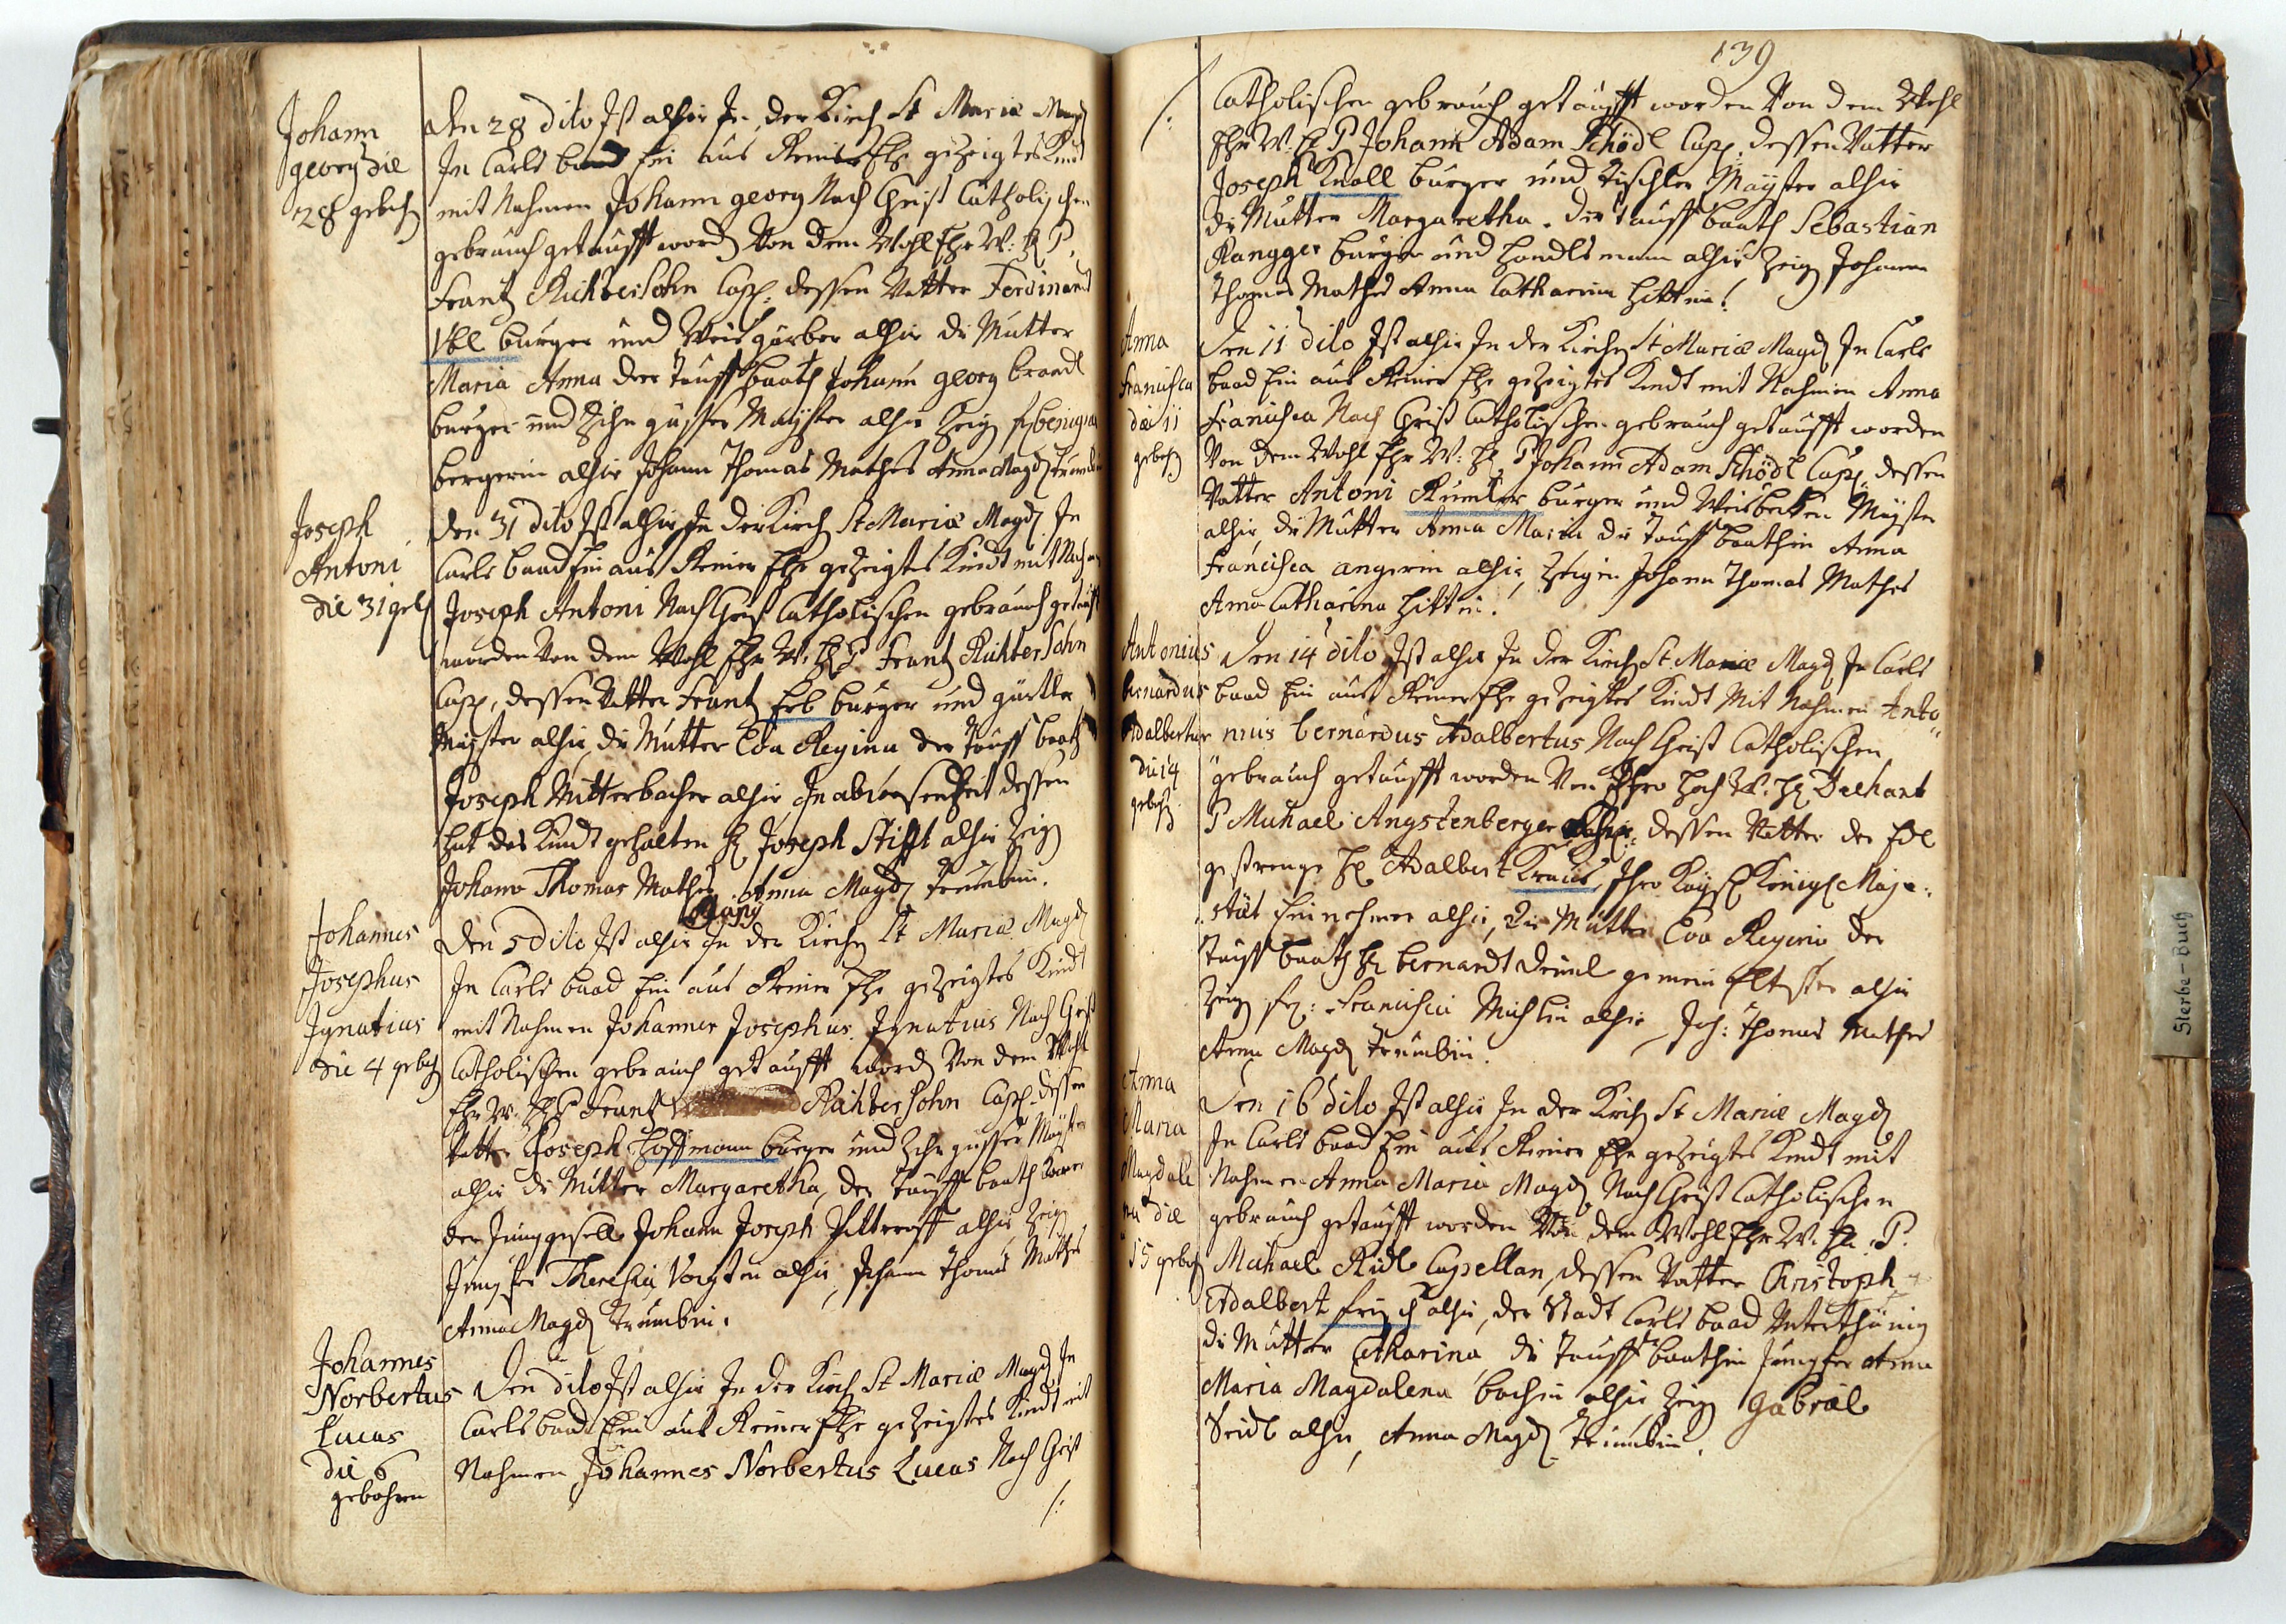 Johann
georg die
28 gebohr
Den 28 dito Ist alhir In der Kirch St Mariæ Magd
In Carls baad Ein aus Reiner Ehe gezeigtes Kind
mit Nahmen Johann georg Nach Christ Catholischen
gebrauch getaufft word Von dem Wohl Ehr W: H P.
Frantz Richter Sohn Cap: dessen Vatter Ferdinand
burger und Weis gärber alhir di Mutter
Maria Anna der Tauff baath Johann georg brandl
burger und Zihn gusser Mayster alhir Zeig
bergerin alhir Johann Thomas Mathes Anna Magd
Joseph
Antoni
die 31 geb
Den 31 dito Ist alhir In der Kirch St Mariæ Magd In
Carls baad Ein aus Reiner Ehe gezeigtes Kindt mit Nahmen
Joseph Antoni Nach Christ Catholischen gebrauch getaufft
worden Von dem Wohl Ehr W: H P Frantz Richter Sohn
Cap, dessen Vatter Frantz Erb burger und gürtler
Mayster alhir di Mutter Eva Regina der Tauff baath
Joseph Mitterbacher alhir In abwesenheit dessen
hat das Kindt gehalten H Joseph Stifft alhir Zeig
Johann Thomas Mathes Anna Magd Trumbin.
Johannes
Josephus
Ignatius
die 4 gebohr
Den 5 dito Ist alhir In der Kirch St Mariæ Magd
In Carls baad Ein aus Reiner Ehe gezeigtes Kindt
mit Nahmen Johannes Josephus Ignatius Nach Christ
Catholischen gebrauch getaufft word Von dem Wohl
Ehr W: H P Frantz Richter Sohn Cap: dessen
Vatter Joseph Hoffmann burger und Zihn gusser Mayster
alhir di Mutter Margaretha, der Tauff baath
der Junggesell Johann Joseph alhir, Zeig
Jungfer Theresia Voigtin alhir, Johann Thomas Mathes
Anna Magd Trumbin.
Johannes
Norbertus
Lucas
die 6
gebohren
Den dito Ist alhir In der Kirch St Mariæ Magd In
Carls baad Ein aus Reiner Ehe gezeigtes Kindt mit
Nahmen Johannes Norbertus Lucas Nach Christ
/:
139
/:
Catholischen gebrauch getaufft worden Von dem Wohl
Ehr W: H P Johann Adam Schödl Cap: dessen Vatter
Joseph Knoll burger und Tischler Mayster alhir
di Mutter Margaretha. der Tauff baath Sebastian
Rangger burger und Handlsmann alhir Zeig Johann
Thomas Mathes Anna Catharina Hittin!
Anna
Francisca
die 11
gebohr
Den 11 dito Ist alhir In der Kirchen St Mariæ Magd In Carls
baad Ein aus Reiner Ehe gezeigtes Kindt mit Nahmen Anna
Francisca Nach Christ Catholischen gebrauch getaufft worden
Von dem Wohl Ehr W: H: P Johann Adam Schödl Cap: dessen
Vatter Antoni burger und Weisbecken Mayster
alhir, di Mutter Anna Maria di Tauff baathin Anna
Francisca angerin alhir, Zeigin Johann Thomas Mathes
Anna Catharina Hittin.
Antonius
bernardus
Adalbertus
die 14
gebohr
Den 14 dito Ist alhir In der Kirch St Mariæ Magd In Carls
baad Ein aus Reiner Ehe gezeigtes Kindt Mit Nahmen Anto
nius bernardus Adalbertus Nach Christ Catholischen
gebrauch getaufft worden Von Ihro Hoch W: H Dechant
P Michael Angstenberger alhir: dessen Vatter der Edl
gestrenge H Adalbert Kraus, Ihro Kays Königl Maje:
stät Einnehmer alhir, die Mutter Eva Regina der
Tauff baath H bernardt Deiml gemein Eltester alhir
Zeig Fr: Francisca Michlin alhir, Joh: Thomas Mathes
Anna Magd Trumbin.
Anna
Maria
Magdale
na die
15 gebohr
Den 16 dito Ist alhir In der Kirch St Mariæ Magd
In Carls baad Ein aus Reiner Ehe gezeigtes Kindt mit
Nahmen Anna Maria Magd Nach Christ Catholischen
gebrauch getaufft worden Von dem Wohl Ehr W: H: P.
Michael Ridl Capellan, dessen Vatter Christoph
Adalbert alhir, der Stadt Carls baad Unterthänig
di Mutter Catharina, di Tauff baathin Jungfer Anna
Maria Magdalena bochin alhir Zeig Gabriel
Seidl alhir, Anna Magd Trumbin.
Sterbe-Buch